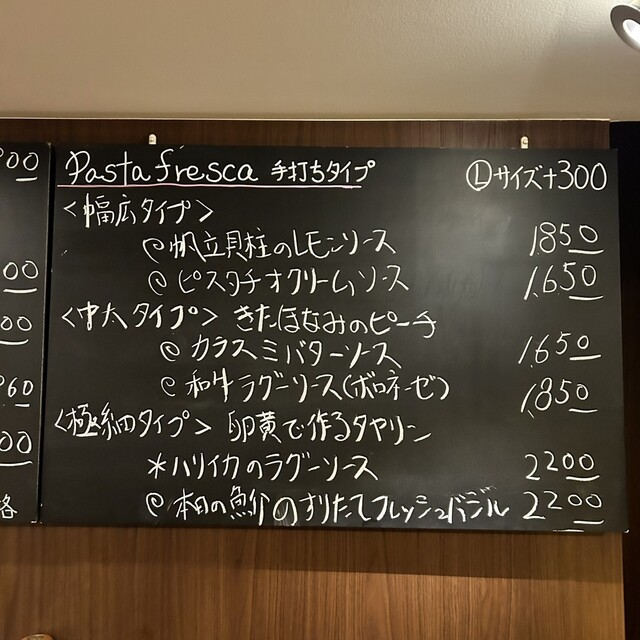 Pasta fresca 手打ちタイプ Ⓛサイズ+300
<幅広タイプ>
@帆立貝柱のレモンソース 1.850
@ピスタチオクリームソース 1.650
<中太タイプ> きたほなみのピーチ
@カラスミバターソース 1.650
@和牛ラグーソース(ボロネーゼ) 1.850
<極細タイプ> 卵黄で作るタヤリン
*ハリイカのラグーソース 2200
@本日の魚介のすりたてフレッシュバジル 2200
00
00
00
960
00
格